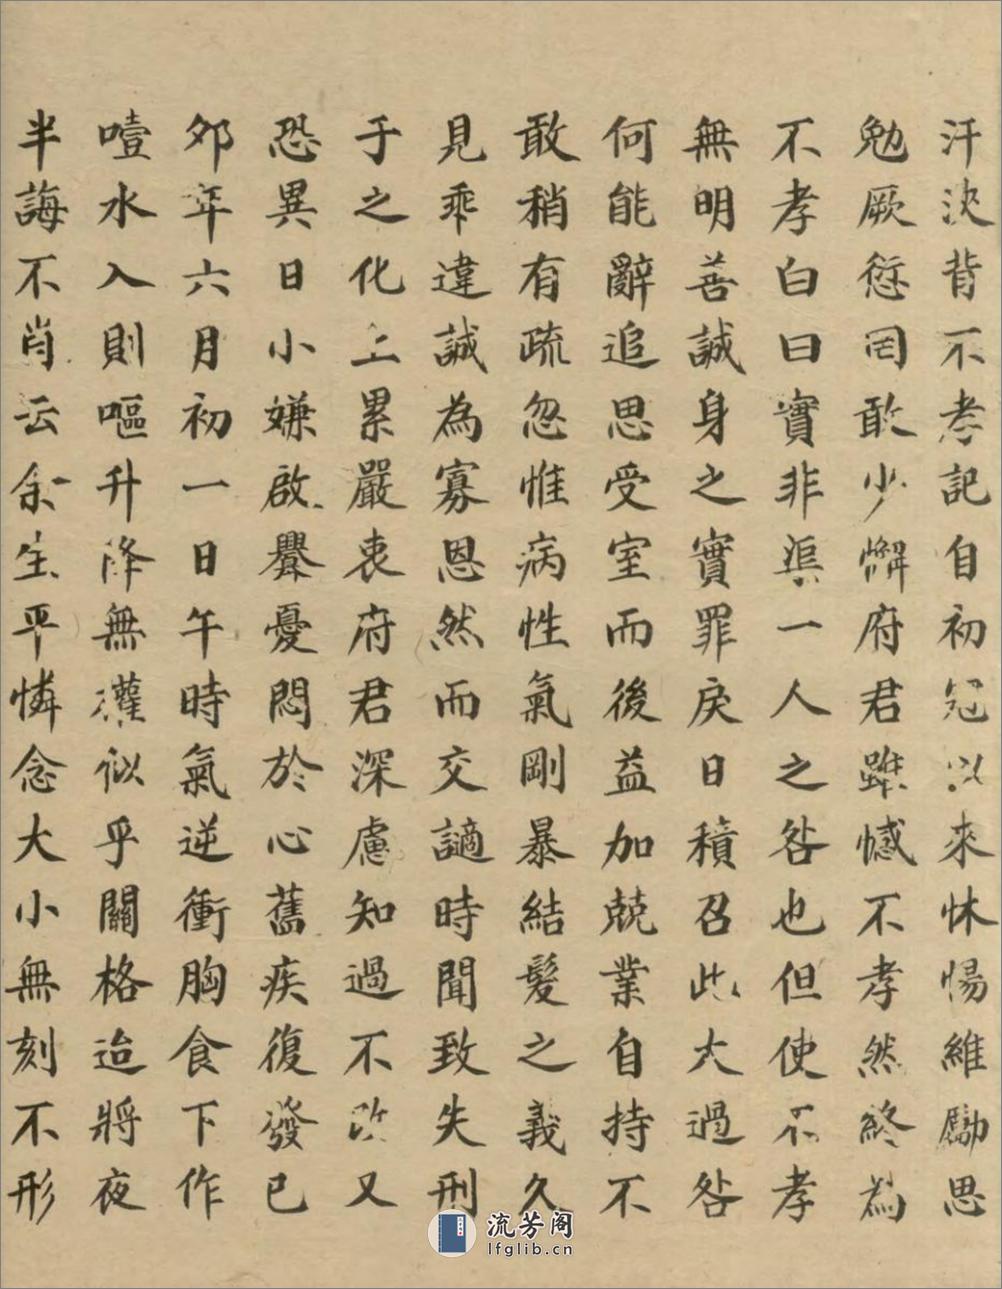 汗浹背不孝記自初冠以來怵惕維勵思
勉厥愆罔敢少懈府君雖憾不孝然終為
不孝白曰實非渠一人之咎也但使不孝
無明善誠身之實罪戾日積召此大過咎
何能辭追思受室而後益加兢業自持不
敢稍有疏忽惟病性氣剛暴結髮之義久
見乖違誠為寡恩然而交謫時聞致失刑
于之化上累嚴衷府君深慮知過不改又
恐異日小嫌啟釁憂悶於心舊疾復發已
夘年六月初一日午時氣逆衝胸食下作
噎水入則嘔升降無權似乎關格迨將夜
半誨不肖云余生平憐念大小無刻不形
流芳阁
lfglib.cn